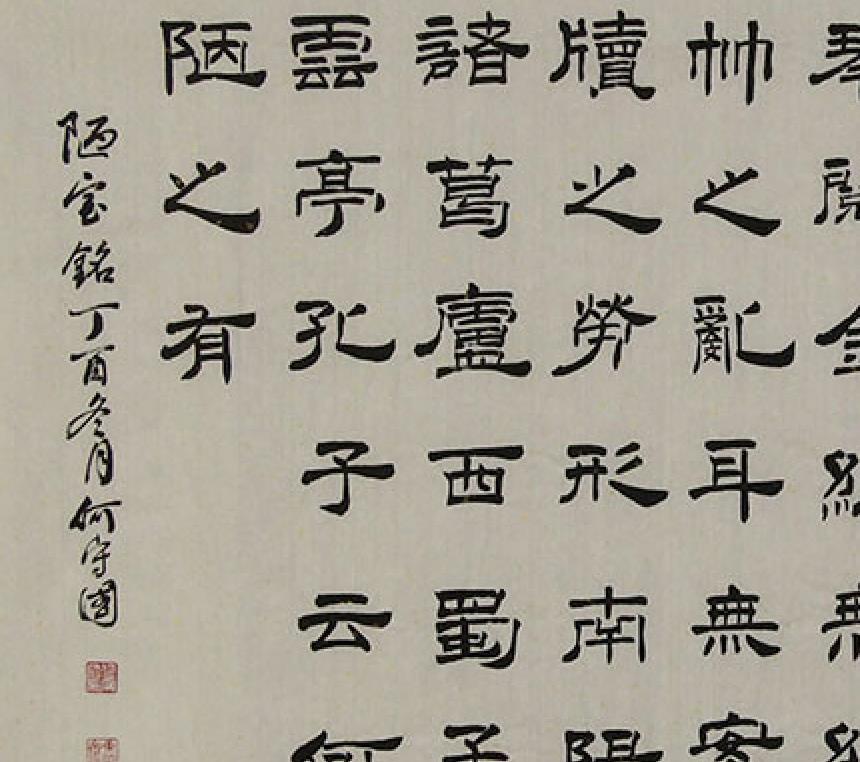 琴閱金經無絲
竹之亂耳無案
牘之勞形南陽
諸葛廬西蜀子
雲亭孔子云何
陋之有
陋室銘丁酉冬月何守國